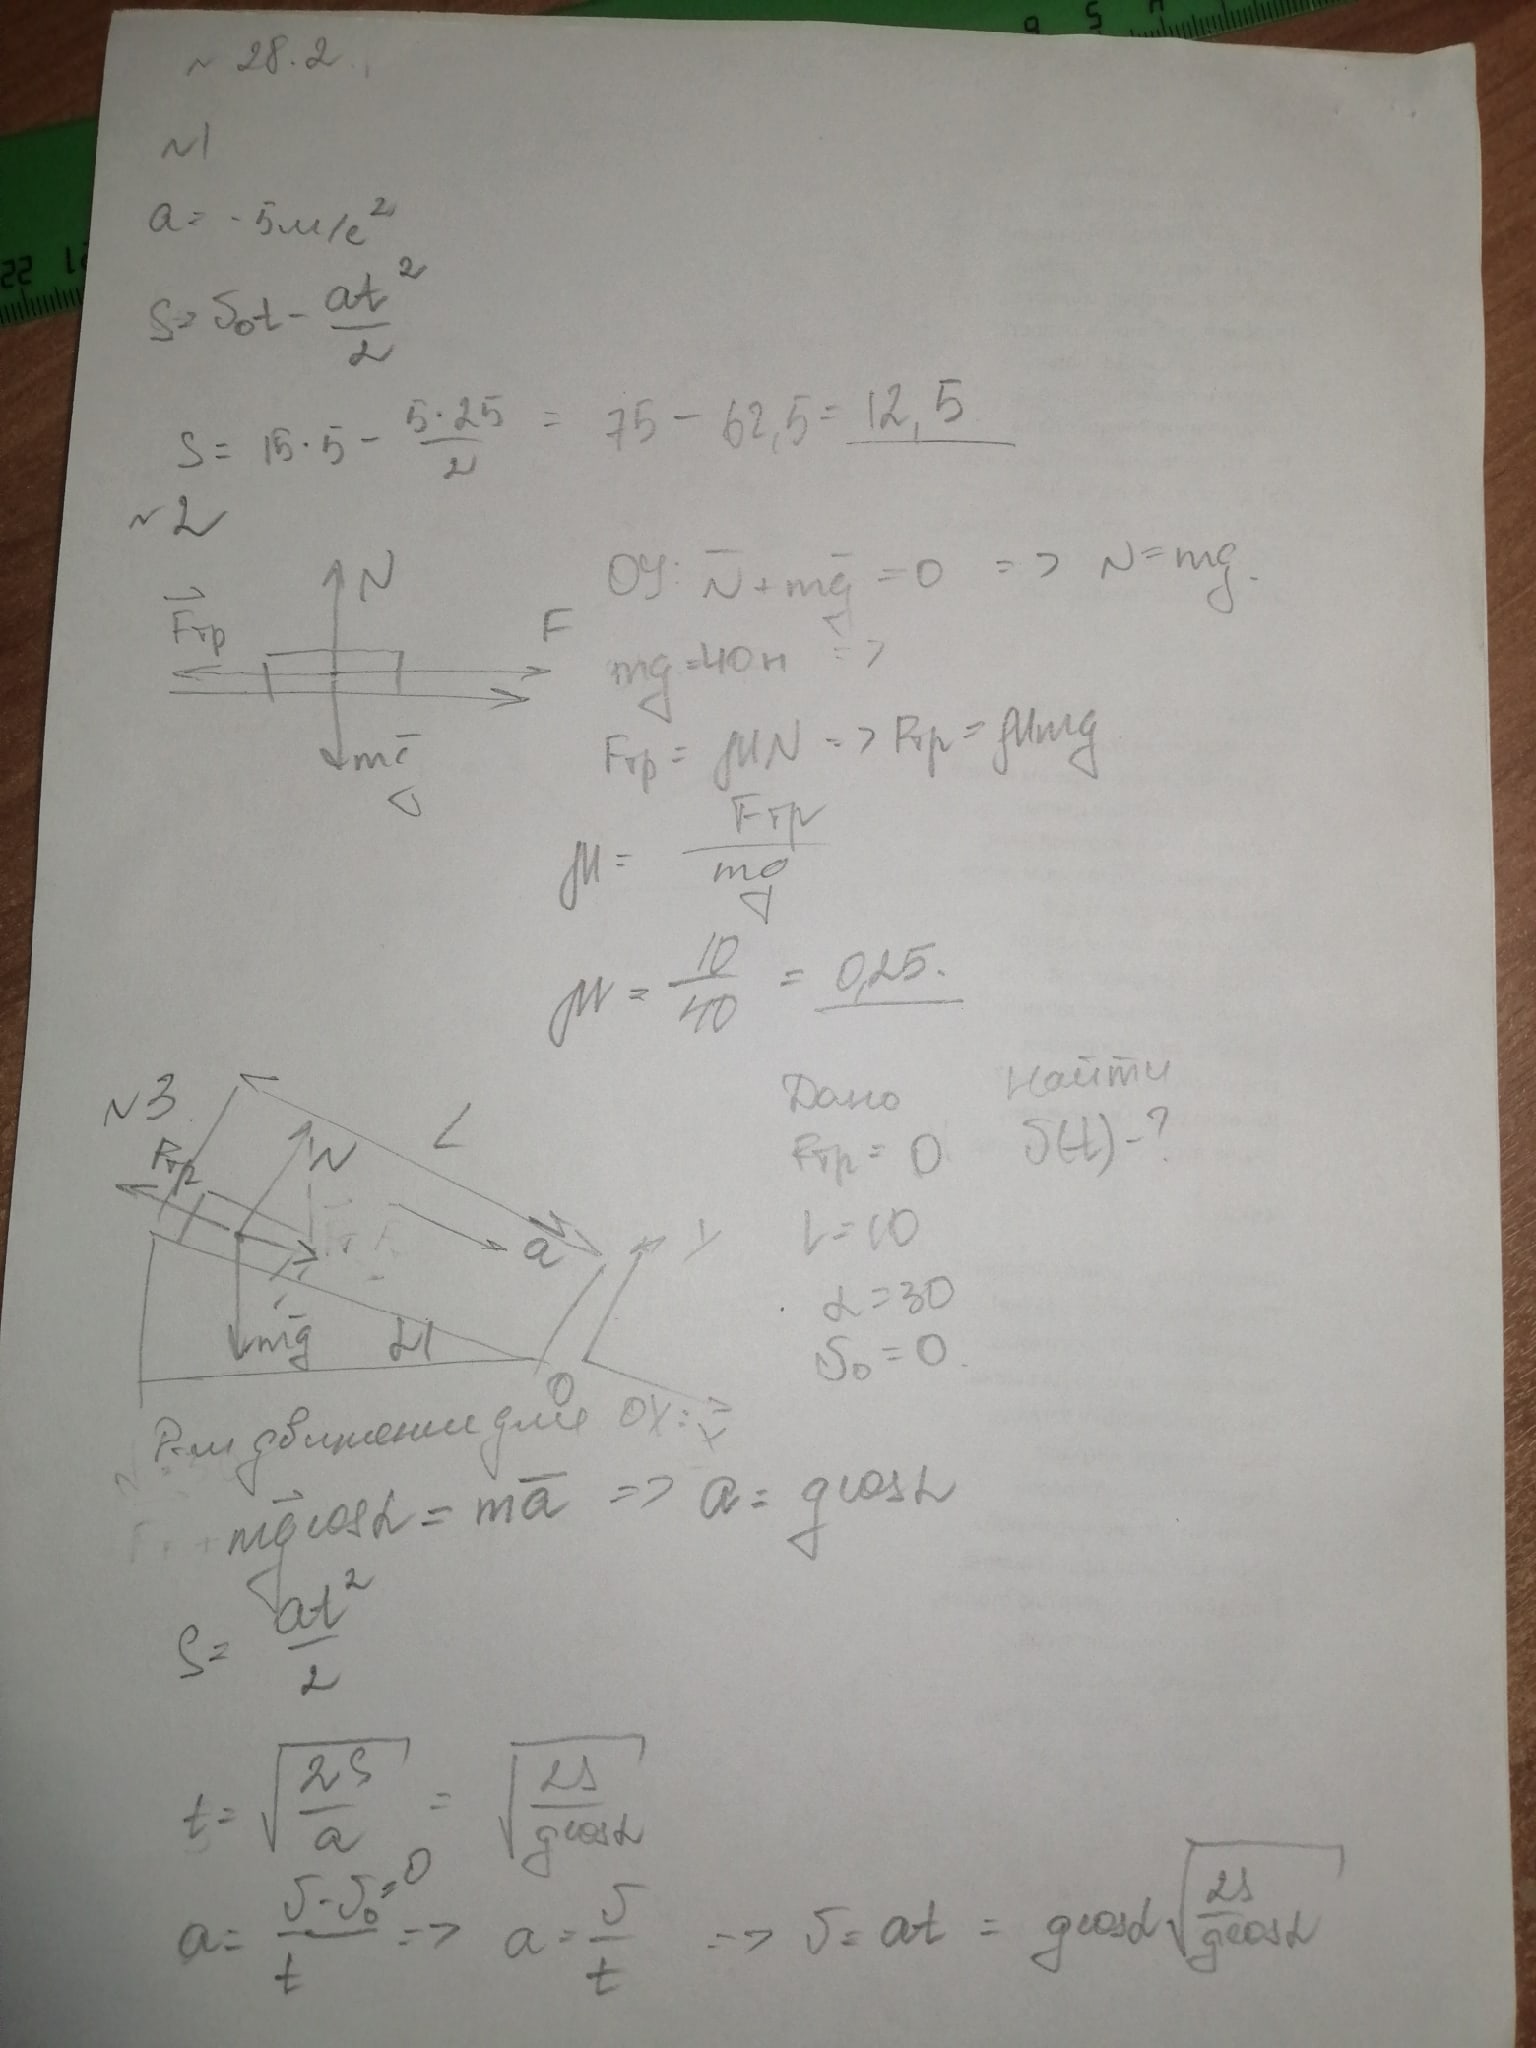 ~ 28.2.
~1
a = -5 м/с²
S = υ₀t - at²/2
S = 15·5 - 5·25/2 = 75 - 62,5 = 12,5
~2
N
Fтр
F
mg
OY: N + mg = 0 => N = mg.
mg = 40 н =>
Fтр = μN => Fтр = μmg
μ = Fтр/mg
μ = 10/40 = 0,25.
~3
L
Fтр
N
a
Y
mg
α
O
X
Дано
Fтр = 0
L = 10
α = 30
υ₀ = 0.
Найти
υ(t) - ?
движении для OX:
mg cosα = ma => a = g cosα
S = at²/2
t = √(2S/a) = √(2S/g cosα)
a = (υ - υ₀)/t => a = υ/t => υ = at = g cosα √(2S/g cosα)
= 0
22
21
6
5
4